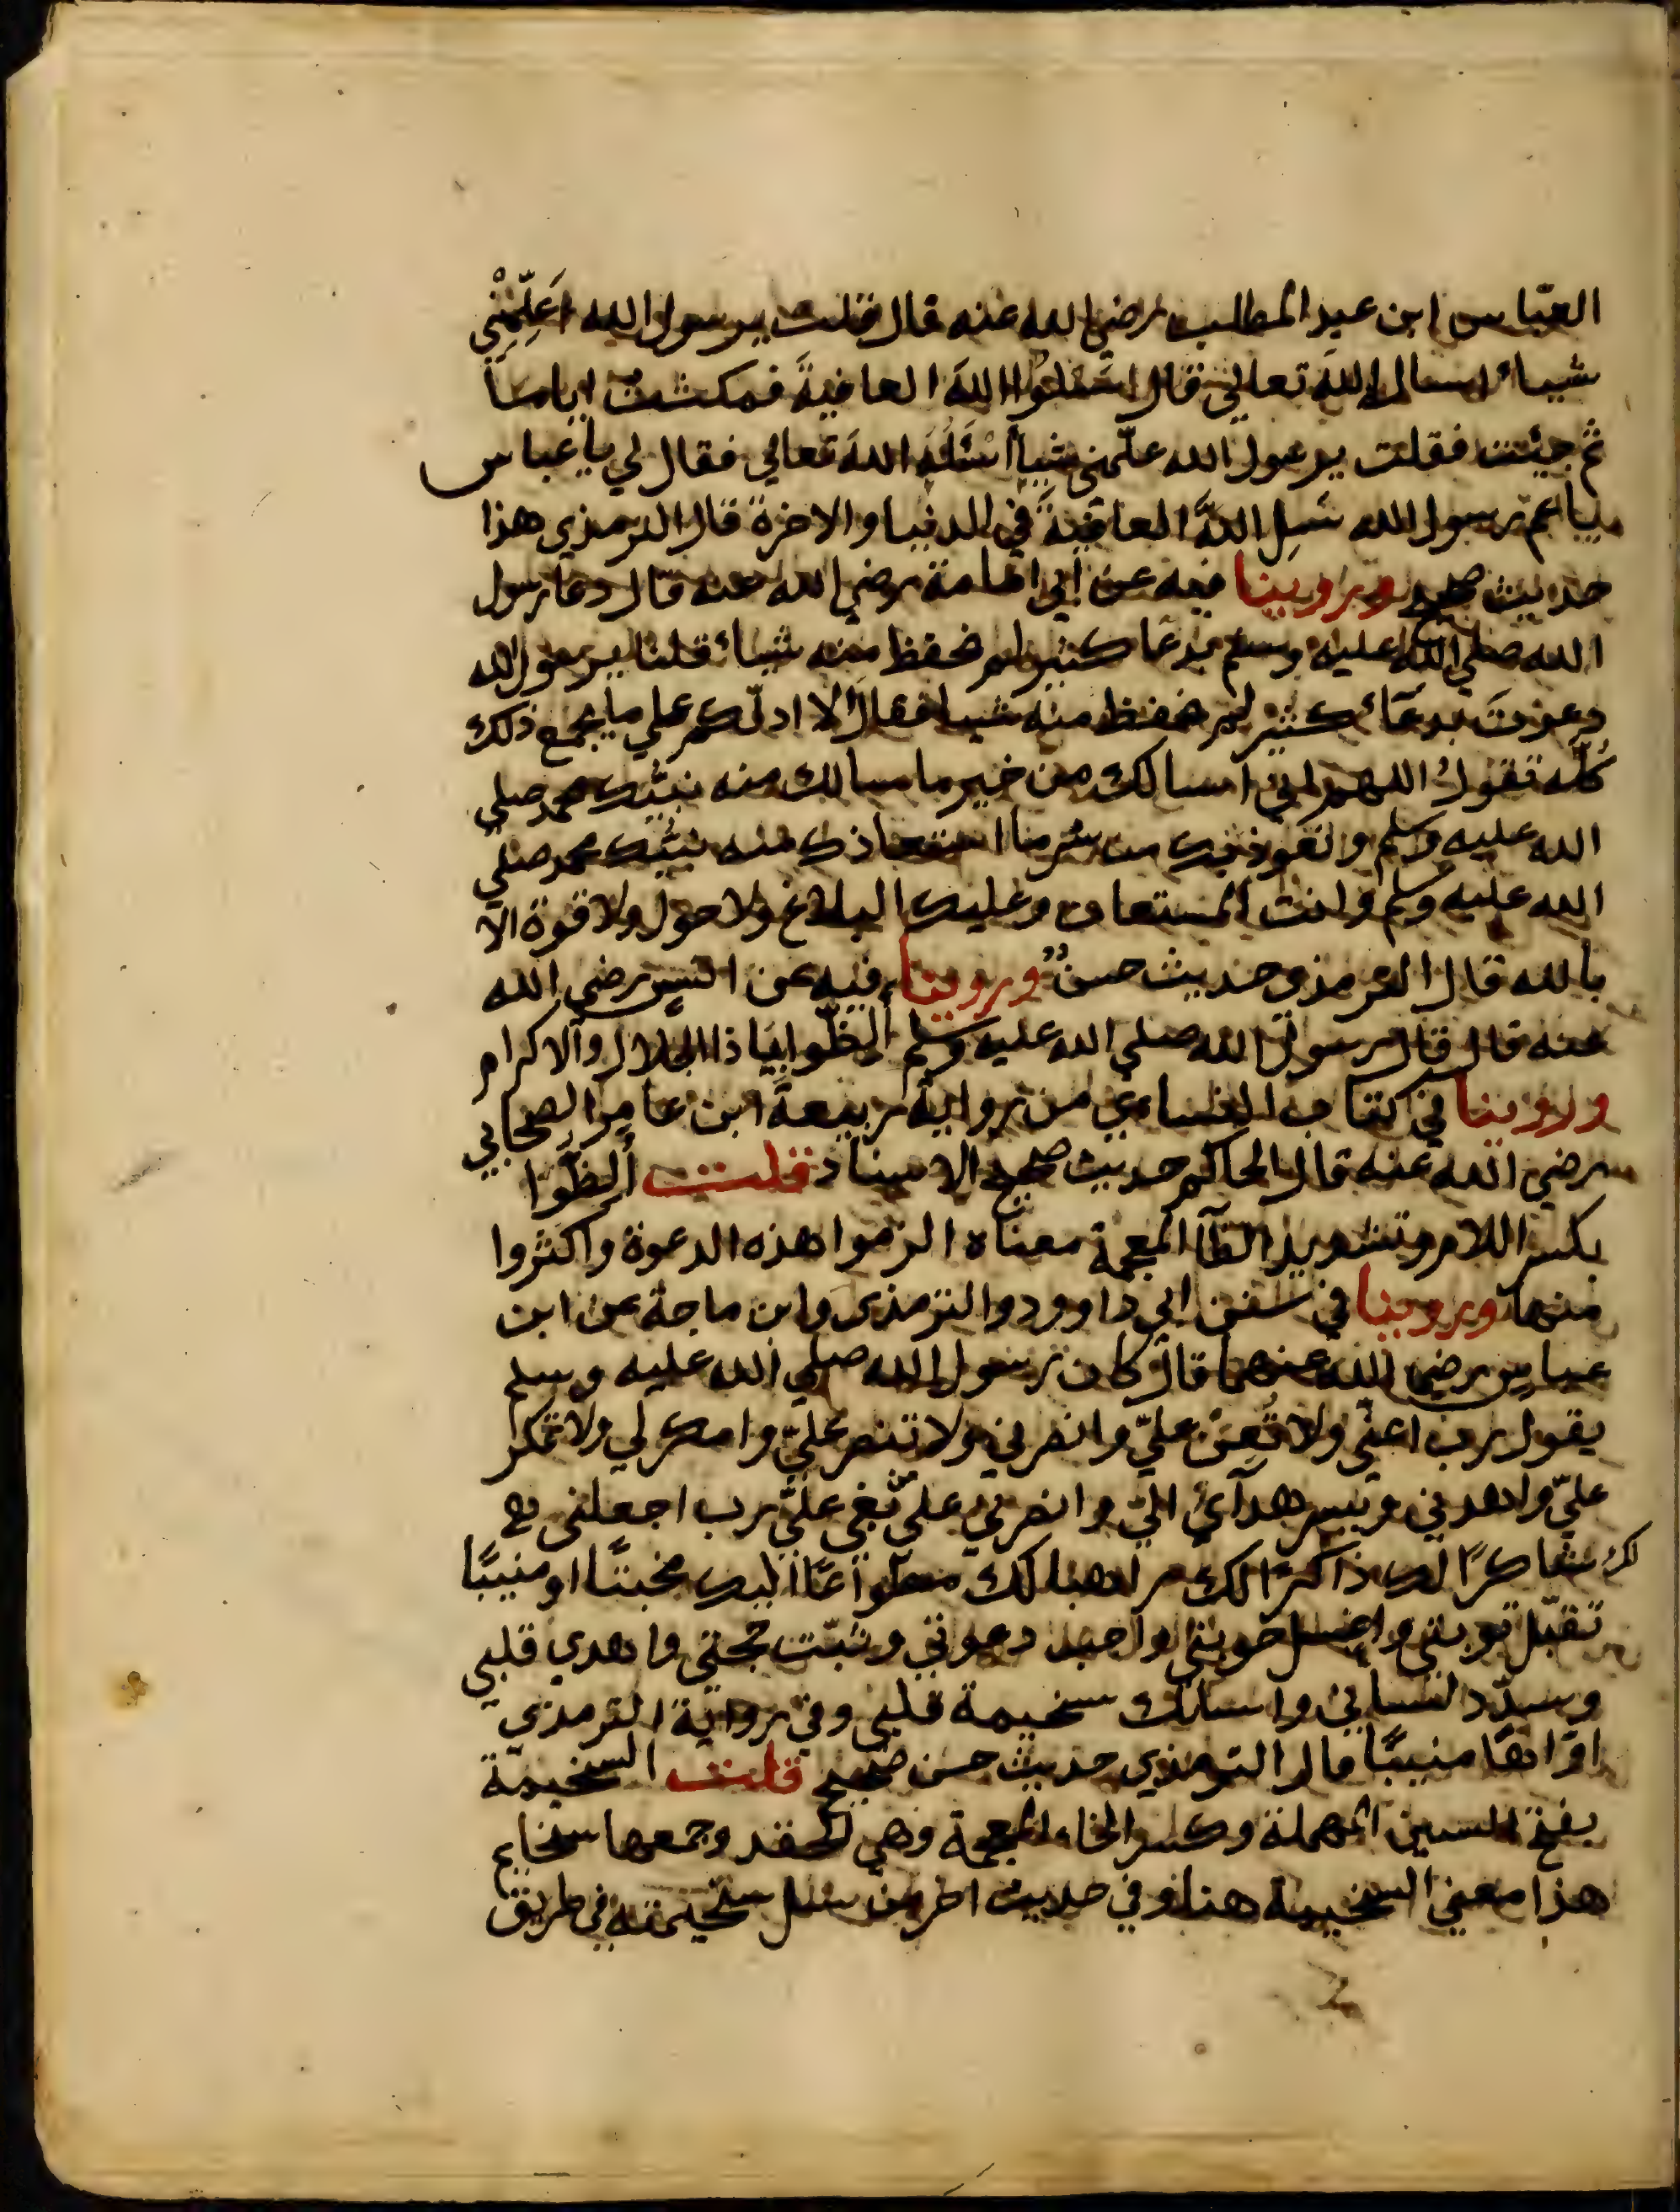 العبّاس ابن عبد المطلب رضي الله عنه قال قلت يرسول الله اعَلِّمْنِي
شيبأ اسال الله تعالي قال اسَئلوا الله العافيةَ فمكثت اياماً
ثم جيئت فقلت يرسول الله علّمني شياً أسْئَلُه اللهَ تعالي فقال لي يا عباس
يا عم رسول الله سَلِ اللهَ العافيةَ في الدنيا والاخرة قال الترمذي هذا
حديث صحيح وروينا فيه عن ابي امامة رضي الله عنه قال دعا رسول
الله صلي الله عليه وسلم بدعا كثير لم نحفظ منه شيأ قلنا يرسول الله
دعوتَ بدعَاء كثير لم نحفظ منه شيا فقال الا ادلّكم علي ما يجمع ذلك
كُلّه تقولُ اللهم اني اسالك من خير ما سالك منه نبيّك محمد صلي
الله عليه وسلم وانعوذ بك من شر ما استعاذك منه نبيّك محمد صلي
الله عليه وسلم وانت المستعان وعليك البلاغ ولا حول ولا قوة الا
بالله قال الترمذي حديث حسنٌ وروينا فيه عن انس رضي الله
عنه قال قال رسول الله صلي الله عليه وسلم ألِظّوا بيَا ذا الجلال والاكرام
وروينا في كتاب النساءي من رواية ربيعةَ ابن عامِر الصحابي
رضي الله عنه قال الحاكم حديث صحيح الاسناد قلت ألِظُّوا
بكسر اللام وتشديد الظآ المعجمة معناه الزموا هذه الدعوة واكثروا
منها وروينا في سنن ابي داوود والترمذي وابن ماجة عن ابن
عباس رضي الله عنهما قال كان رسول الله صلي الله عليه وسلم
يقول رب اعنّي ولا تُعِنْ عليّ وانصرني ولا تنصر عليّ وامكر لي ولا تمكر
عليّ واهدني ويسر هدآيَ اليّ وانصرني علي من بغي عليّ رب اجعلني
لك شاكرًا لك ذاكرًا لك راهبا لك مطواعًا اليك مخبتًا او منيبًا
تقبّل توبتي واغسل حوبتي واجب دعوتي وثبّت حجتي واهدي قلبي
وسدّد لساني واسلك سخيمة قلبي وفي رواية الترمذي
اوّاهًا منيبًا قال الترمذي حديث حسن صحيح قلت السخيمة
بفتح السين المهملة وكسر الخاء المعجمة وهي الحقد وجمعها سخايم
هذا معني السخيمة هنا وفي حديث اخر من سل سخيمته في طريق